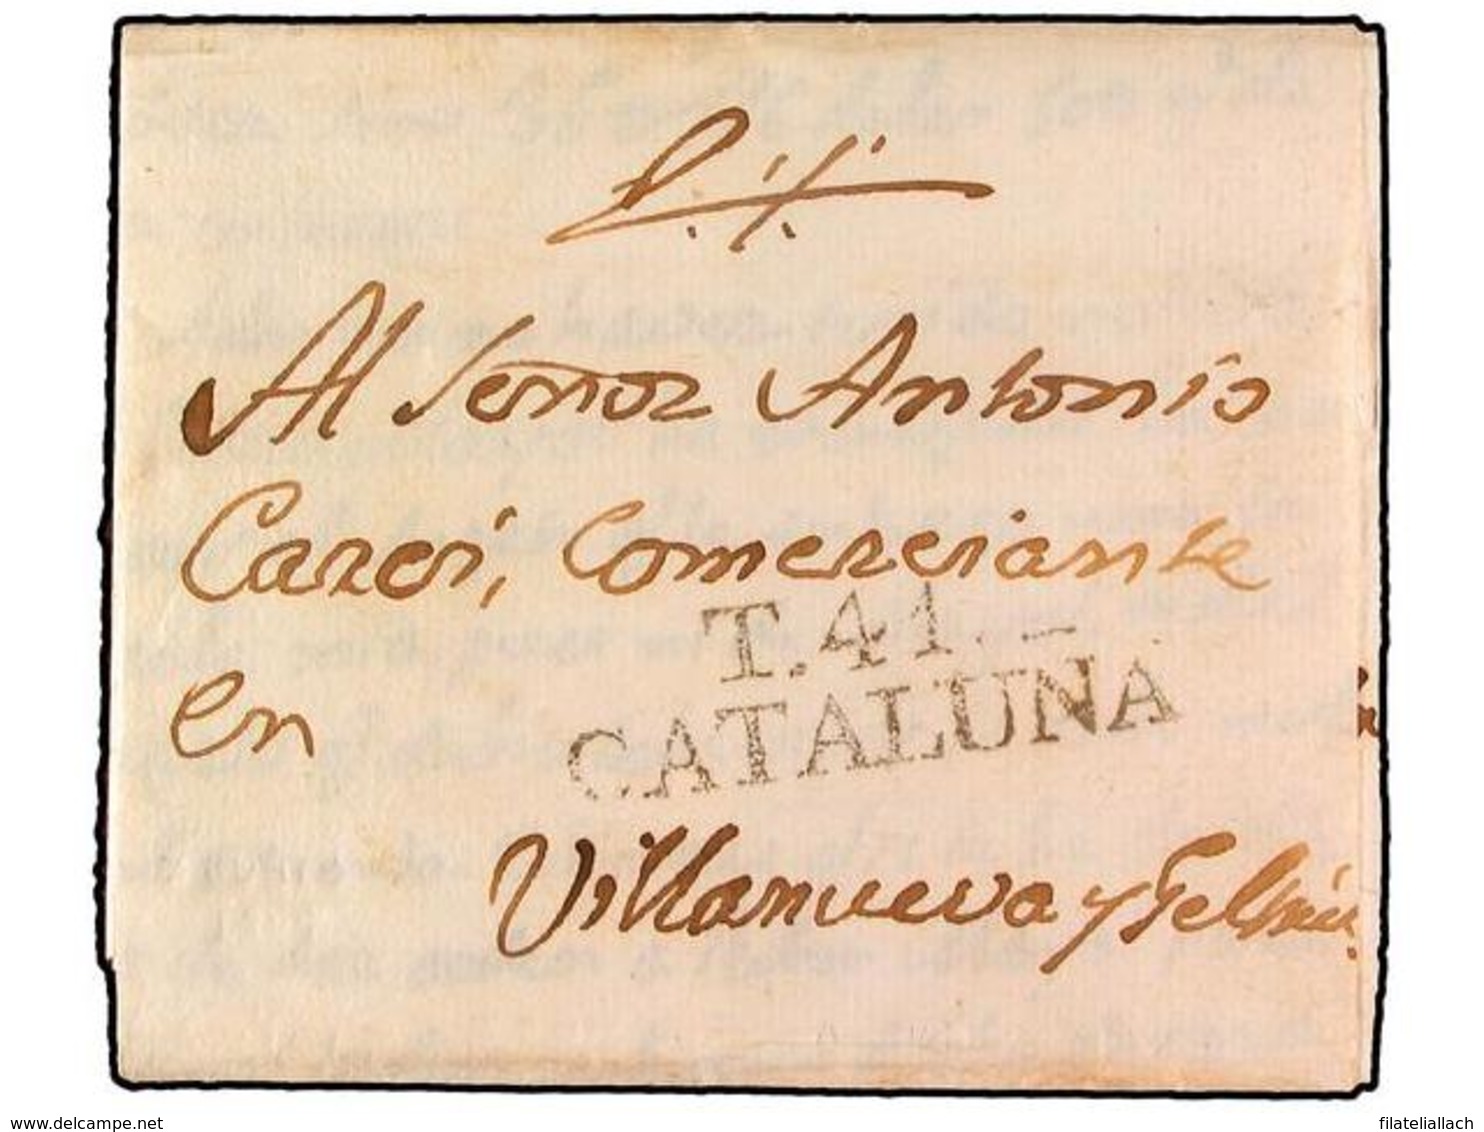 Al Señor Antonio
Carei, Comerciante
T.41.
CATALUNA
en
Villanueva y Geltrú
delcampe.net
filateliallach